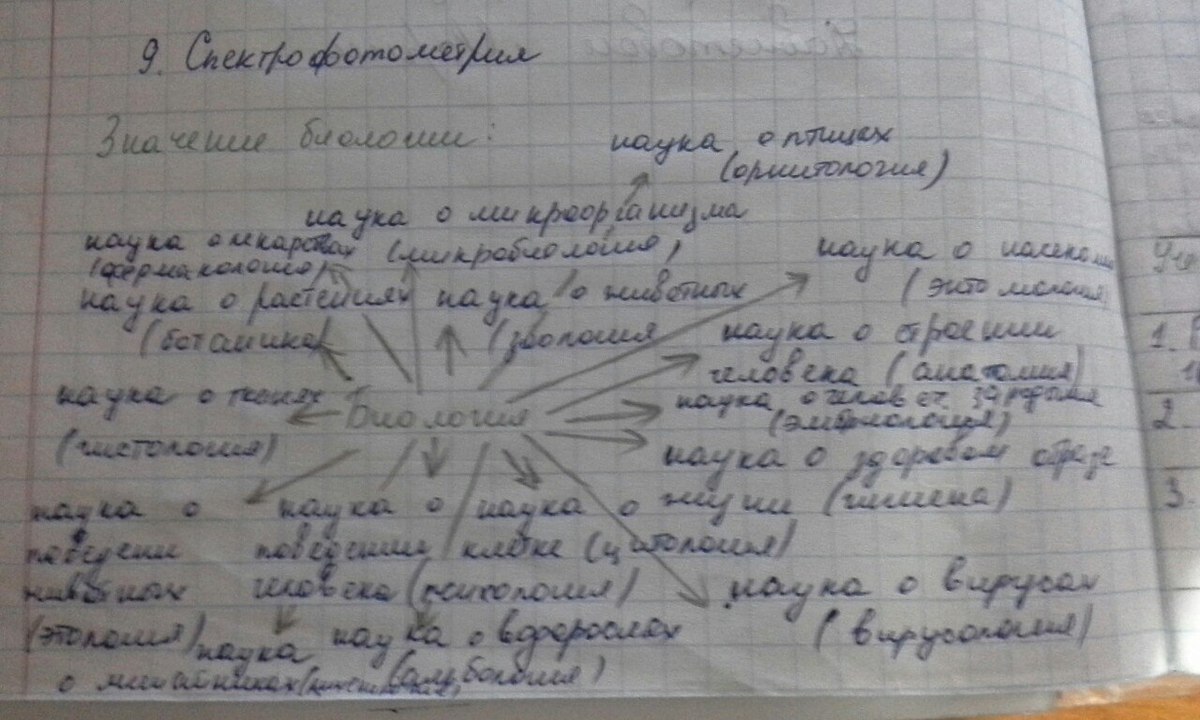 9. Спектрофотометрия
Значение биологии:
наука о птицах
(орнитология)
наука о микроорганизма
(микробиология)
наука о лекарствах
(фармакология)
наука о
(энтомология)
наука о растениях
(ботаника)
наука о животных
(зоология
наука о строении
человека (анатомия)
наука о тканях
(гистология)
Биология
наука о человеч. зародыше
(эмбриология)
наука о здоровом образе
жизни (гигиена)
наука о
поведении
животных
(этология)
наука о
поведении
человека (психология)
наука о
клетке (цитология)
наука о вирусах
(вирусология)
наука
о лишайниках
наука о водорослях
(альгология)
1.
2.
3.